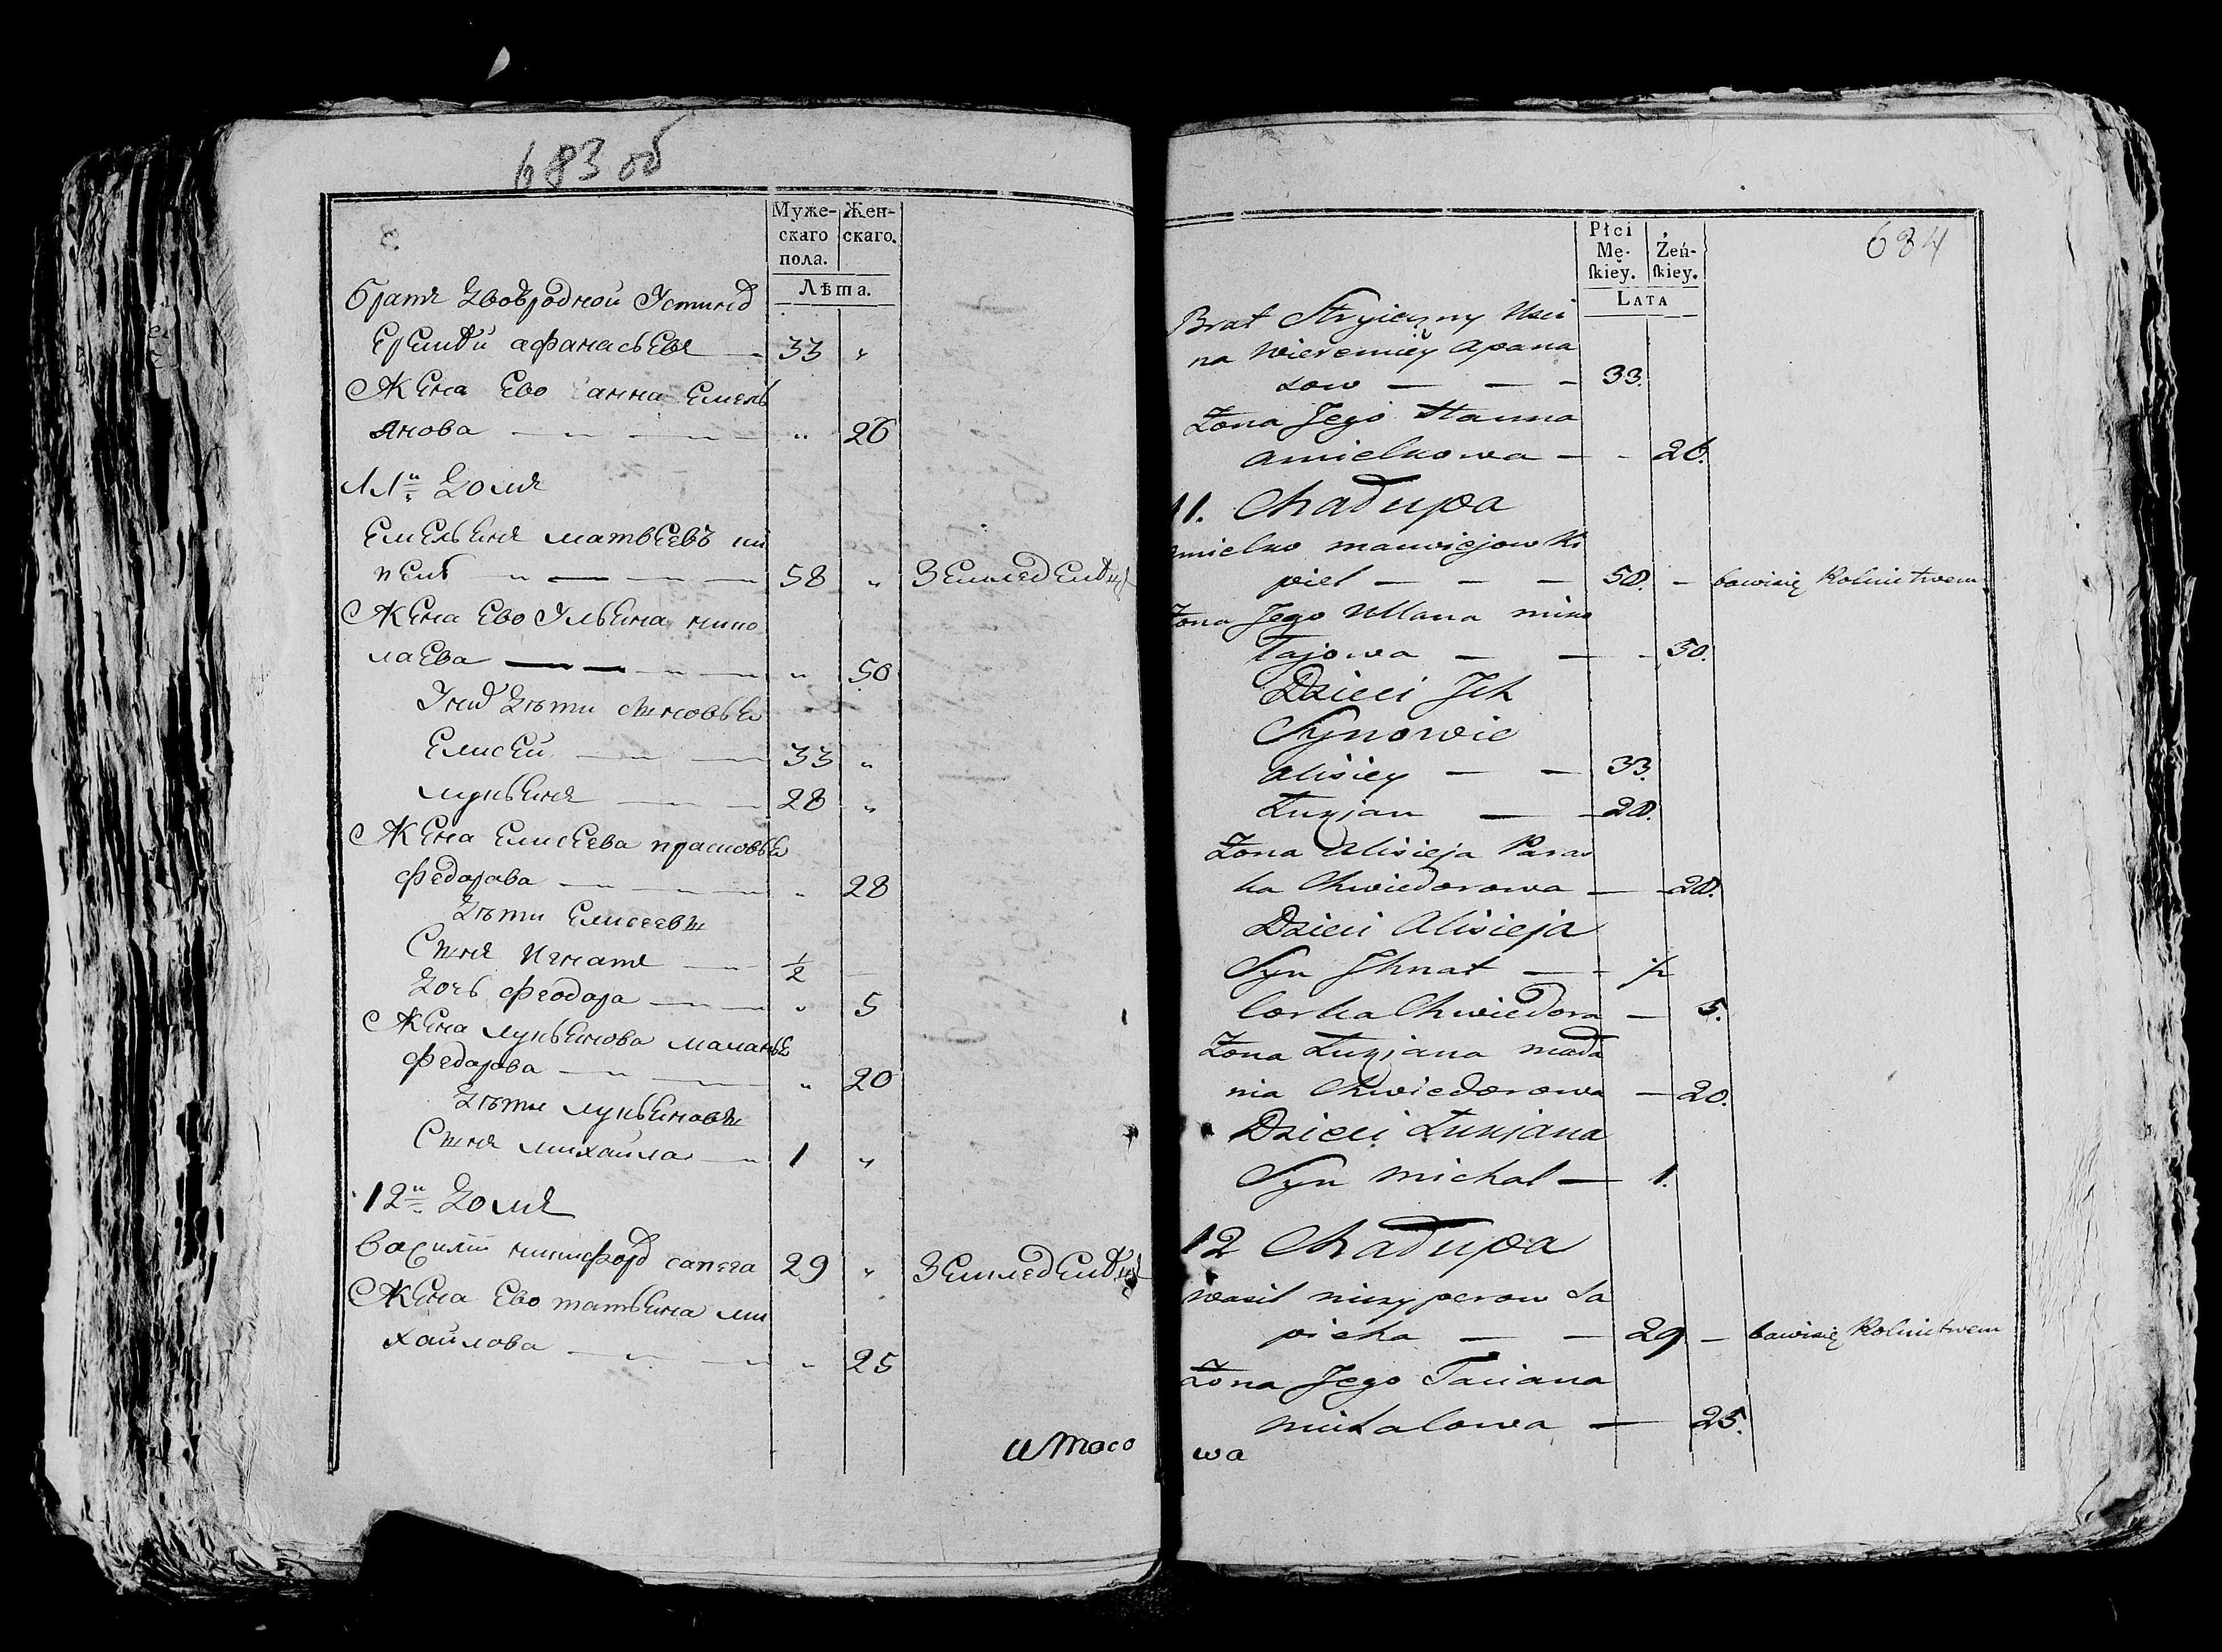 683 об
Муже-
скаго
пола.
Жен-
скаго.
Лѣта.
братъ Двоюродной Устина
Еремѣй афанасьевъ — 33 "
Жена Ево анна Емель
янова — " 26
11й Домъ
Емельянъ матвеевъ ки
пель — 58 " Земледелѣцъ
Жена Ево Ульяна нико
лаева — " 50
Ихъ Дѣти сыновья
Елисей — 33 "
лукьянъ — 28 "
Жена Елисеева прасковья
федорова — " 28
Дѣти Елисеевы
Сынъ Игнатъ — 1/2
Дочь феодора — " 5
Жена лукьянова маланья
федорова — " 20
Дѣти лукьяновы
Сынъ михайла — 1 "
12й Домъ
Василий никифоръ сапега 29 " Земледелѣцъ
Жена Ево татьяна ми
хайлова — " 25
итого
684
Płci
Mę-
ſkiey.
Żeń-
ſkiey.
LATA
Brat Stryieczny Usci
na Wieremiey Apana
sow — — — 33.
Żona Jego Hanna
Amielkowa — - 26.
11. Chałupa
Amielko Maciejow Ki
piel — — — 58. — bawi się Rolnictwem
Żona Jego Ullana Miko
łajowa — — - 50.
Dzieci Jch
Synowie
Alisiey — — 33.
Łukjan — — 28.
Żona Alisieja Paras
ka Chwiedorowa — - 28.
Dzieci Alisieja
Syn Jhnat — - 1/2
Corka Chwiedora — 5.
Żona Łukjana Mała
nia Chwiedorowa — 20.
Dzieci Łukjana
Syn Michał — 1.
12 Chałupa
Wasil Nikyperow Sa
pieha — — 29 — bawi się Rolnictwem
Żona Jego Taciana
Michałowa — 25.
wa